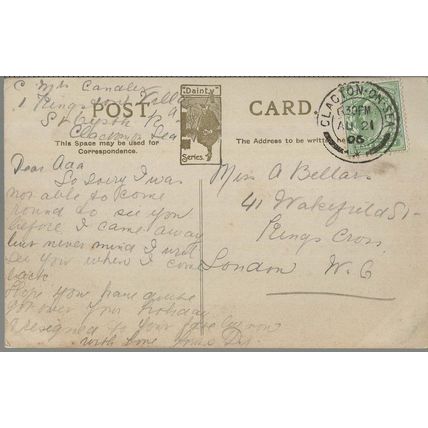 C Mrs Candler
1 Kingston Villa
St
Clacton Sea
POST CARD.
"Dainty"
Series.
This Space may be used for
Correspondence.
The Address to be written
CLACTON-ON-SEA
630PM
AU 21
06
Dear Ada
So sorry I was
not able to come
round to see you
before I came away
but never mind I will
see you when I come
back
Hope you have quite
got over your holiday
to your
with love from
Miss A Bellars
41 Wakefield St
Kings Cross
London W.C